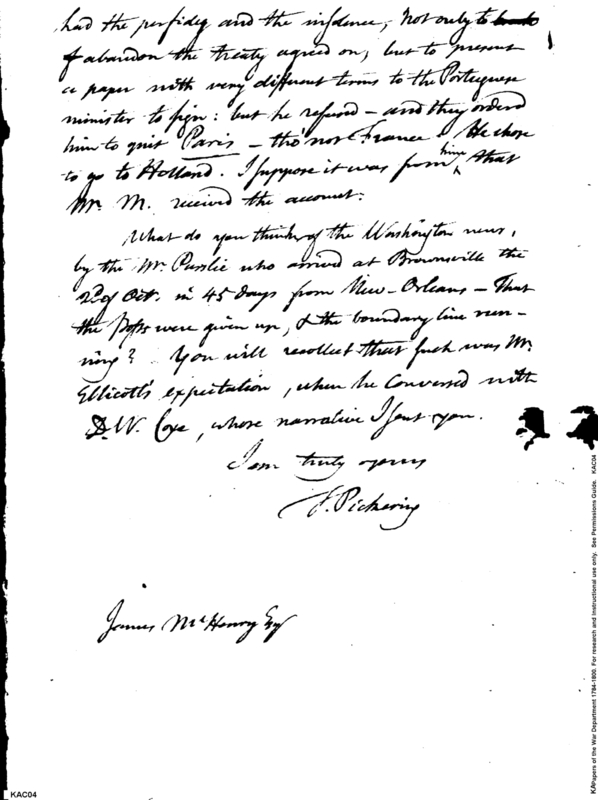 had the perfidy and the insolence, not only to break
of abandon the treaty agreed on, but to present
a paper with very different terms to the Portuguese
minister to sign: but he refused – and they orderd
him to quit Paris – tho' not France. He chose
to go to Holland. I suppose it was from him that
Mr. M. received the account.
What do you think of the Washington news,
by the Mr. Purslie who arrived at Brownsville the
2d of Oct. in 45 days from New-Orleans – That
the Posts were given up, & the boundary line run-
ning? You will recollect that such was Mr.
Ellicott's expectation, when he conversed with
D. W. Coxe, whose narrative I sent you.
I am truly yours
T. Pickering
James McHenry Esq
KAC04
KAPapers of the War Department 1784-1800. For research and instructional use only. See Permissions Guide. KAC04